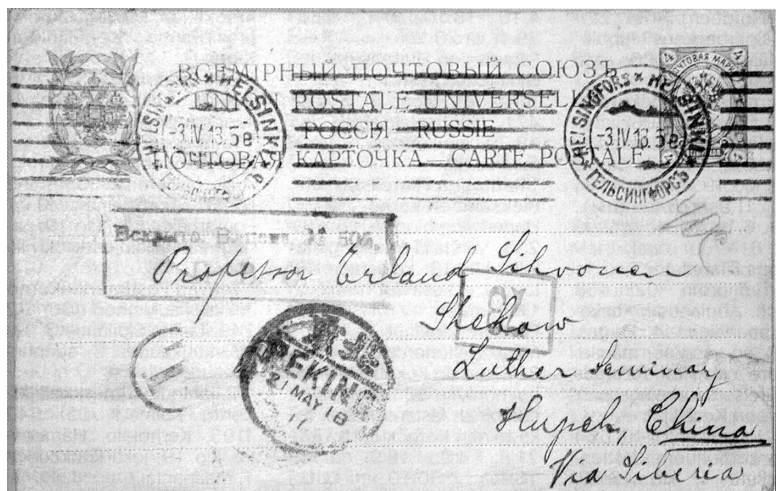 ВСЕМІРНЫЙ ПОЧТОВЫЙ СОЮЗЪ
UNION POSTALE UNIVERSELLE
РОССІЯ RUSSIE
ПОЧТОВАЯ КАРТОЧКА – CARTE POSTALE
HELSINGFORS * HELSINKI
-3.IV.18.
ГЕЛЬСИНГФОРСЪ
HELSINGFORS * HELSINKI
-3.IV.18.
ГЕЛЬСИНГФОРСЪ
Вскрыто. В. цензъ. № 505.
Professor Erland Sihvonen
Shekow
Luther Seminary
Hupeh, China
Via Siberia
北京
PEKING
21 MAY 18